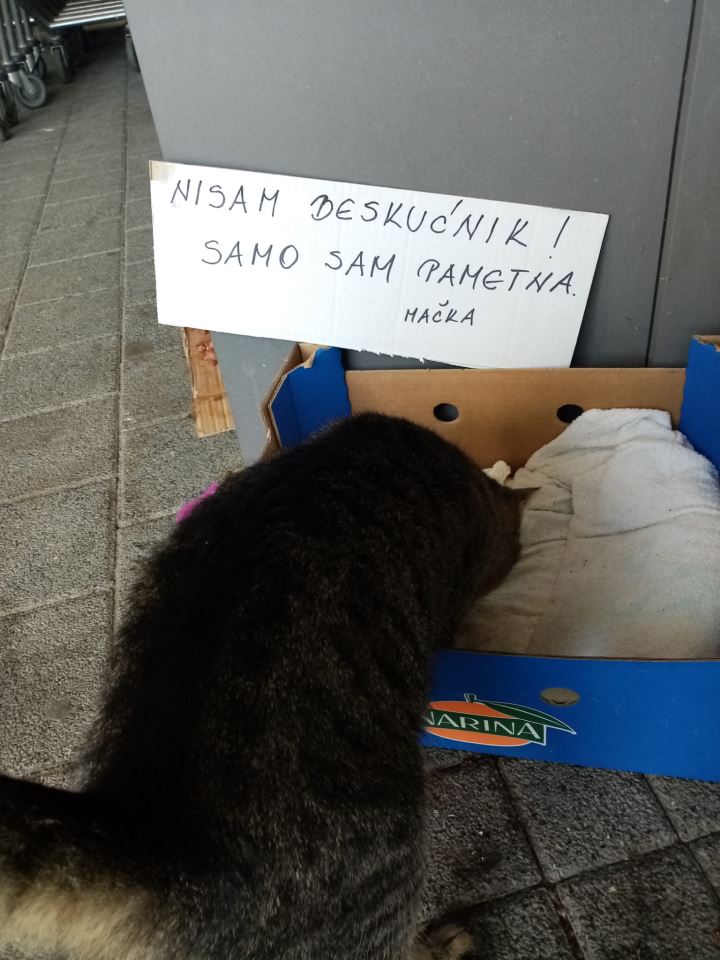 NISAM BESKUĆNIK!
SAMO SAM PAMETNA.
MAČKA
NARINA